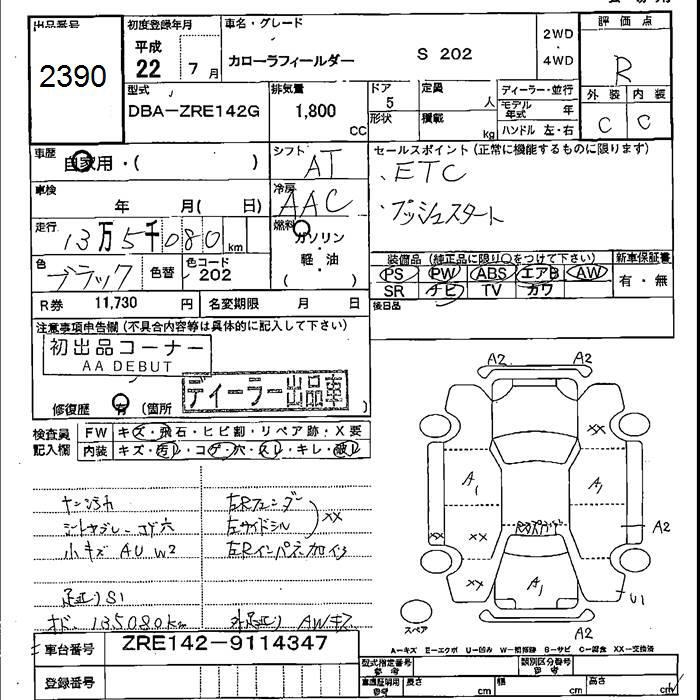 出品番号
2390
初度登録年月
平成
22 7 月
車名・グレード
カローラフィールダー S 202
2WD
・
4WD
評価点
R
外装 内装
C C
型式
DBA-ZRE142G
排気量
1,800
CC
ドア
5
形状
定員
人
積載
kg
ディーラー・並行
モデル年式 年
ハンドル 左・右
車歴
自家用・( )
シフト
AT
セールスポイント(正常に機能するものに限ります)
、ETC
・プッシュスタート
車検
年 月( 日)
冷房
AAC
走行
13万5千080 km
燃料
ガソリン
軽・油
・
( )
色
ブラック
色替
色コード
202
装備品(純正品に限り○をつけて下さい)
PS PW ABS エアB AW
SR ナビ TV カワ
新車保証書
有・無
後日品
R券 11,730 円
名変期限 月 日
注意事項申告欄(不具合内容等は具体的に記入して下さい)
初出品コーナー
AA DEBUT
ディーラー出品車
修復歴 有 (箇所 )
検査員
記入欄
FW キズ・飛石・ヒビ割・リペア跡・X要
内装 キズ・汚レ・コゲ・穴・スレ・キレ・破レ
シートヤブレ コゲ穴
小キズ AU W2
足廻りS1
135080km
右Rフェンダー
左サイドシル
XX
外足廻り AWキズ
A2
A2
XX
A1
A1
A2
XX
XX
XX
A1
U1
A2
スペア
A－キズ E－エクボ U－凹み W－補修跡 S－サビ C－腐食 XX－交換済
車台番号
ZRE142-9114347
登録番号
型式指定番号
参考
類別区分番号
参考
車庫証明用
参考
長さ cm
幅 cm
高さ cm